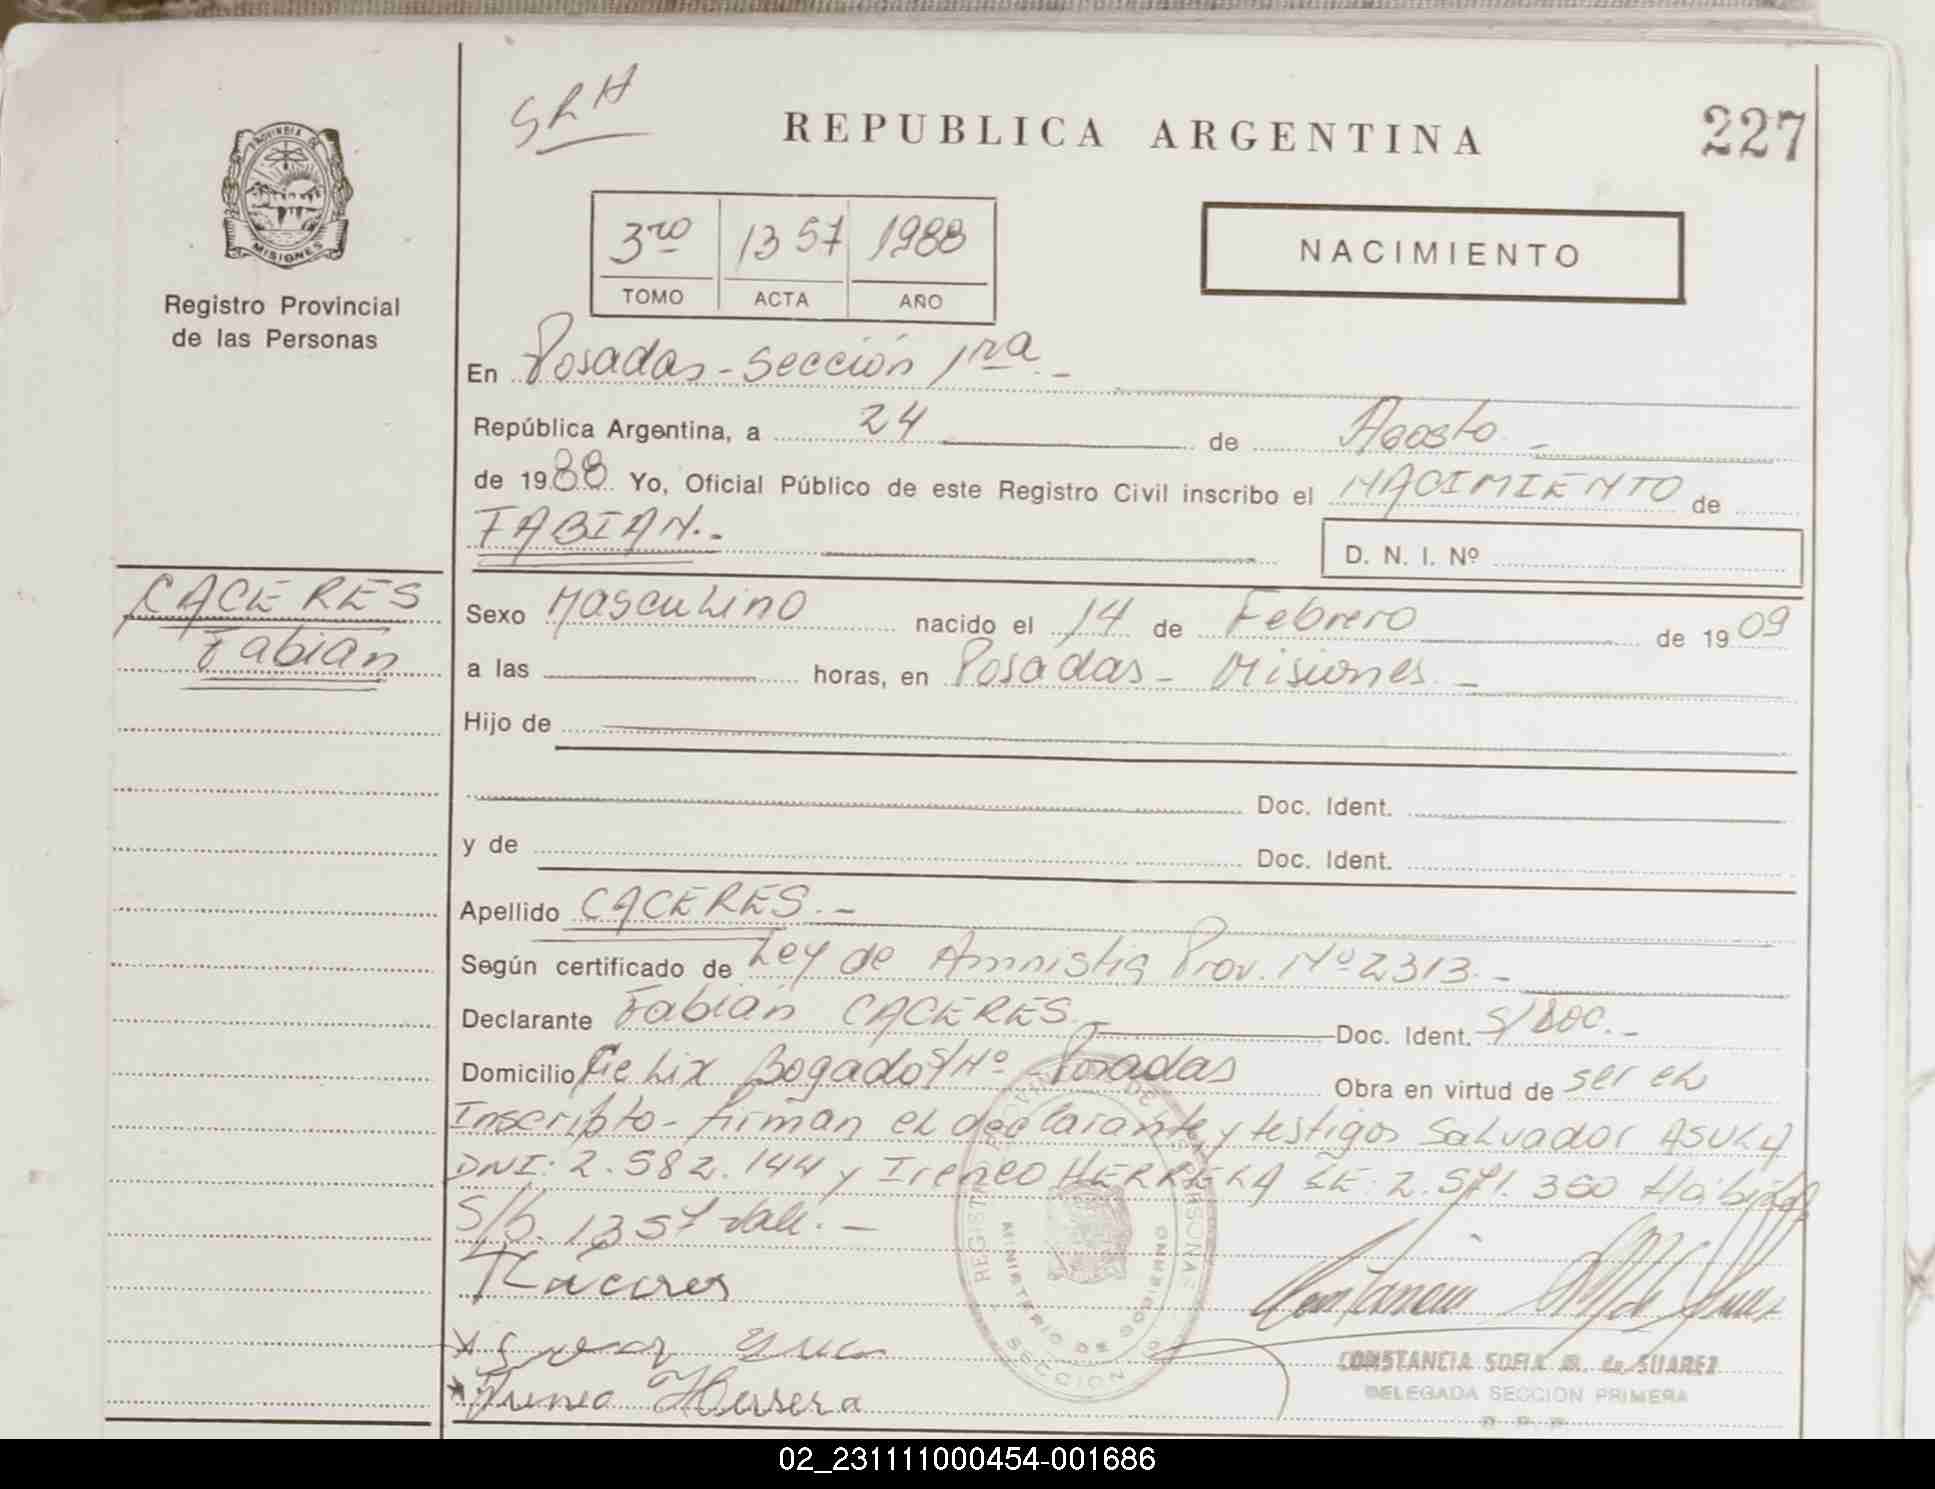 SRH
REPUBLICA ARGENTINA
227
PROVINCIA DE
MISIONES
Registro Provincial
de las Personas
3ro 1357 1988
TOMO ACTA AÑO
NACIMIENTO
En Posadas - Sección 1ra. -
República Argentina, a 24 de Agosto. -
de 1988. Yo, Oficial Público de este Registro Civil inscribo el NACIMIENTO de
FABIAN. -
D. N. I. Nº
CACERES
Fabián
Sexo Masculino nacido el 14 de Febrero de 1909
a las horas, en Posadas - Misiones. -
Hijo de
Doc. Ident.
y de Doc. Ident.
Apellido CACERES. -
Según certificado de Ley de Amnistia Prov. Nº 2313. -
Declarante Fabián CACERES. - Doc. Ident. S/Doc. -
Domicilio Felix Bogado S/Nº Posadas Obra en virtud de ser el
Inscripto - firman el declarante y testigos Salvador
DNI: 2.582.144 y Ireneo HERRERA LE: 2.571.360
S/b. 1357 vale. -
REGISTRO PROVINCIAL DE LAS PERSONAS
MINISTERIO DE GOBIERNO
SECCION
Caceres
Herrera
CONSTANCIA SOFIA M. de SUAREZ
DELEGADA SECCION PRIMERA
R. P. P.
02_231111000454-001686